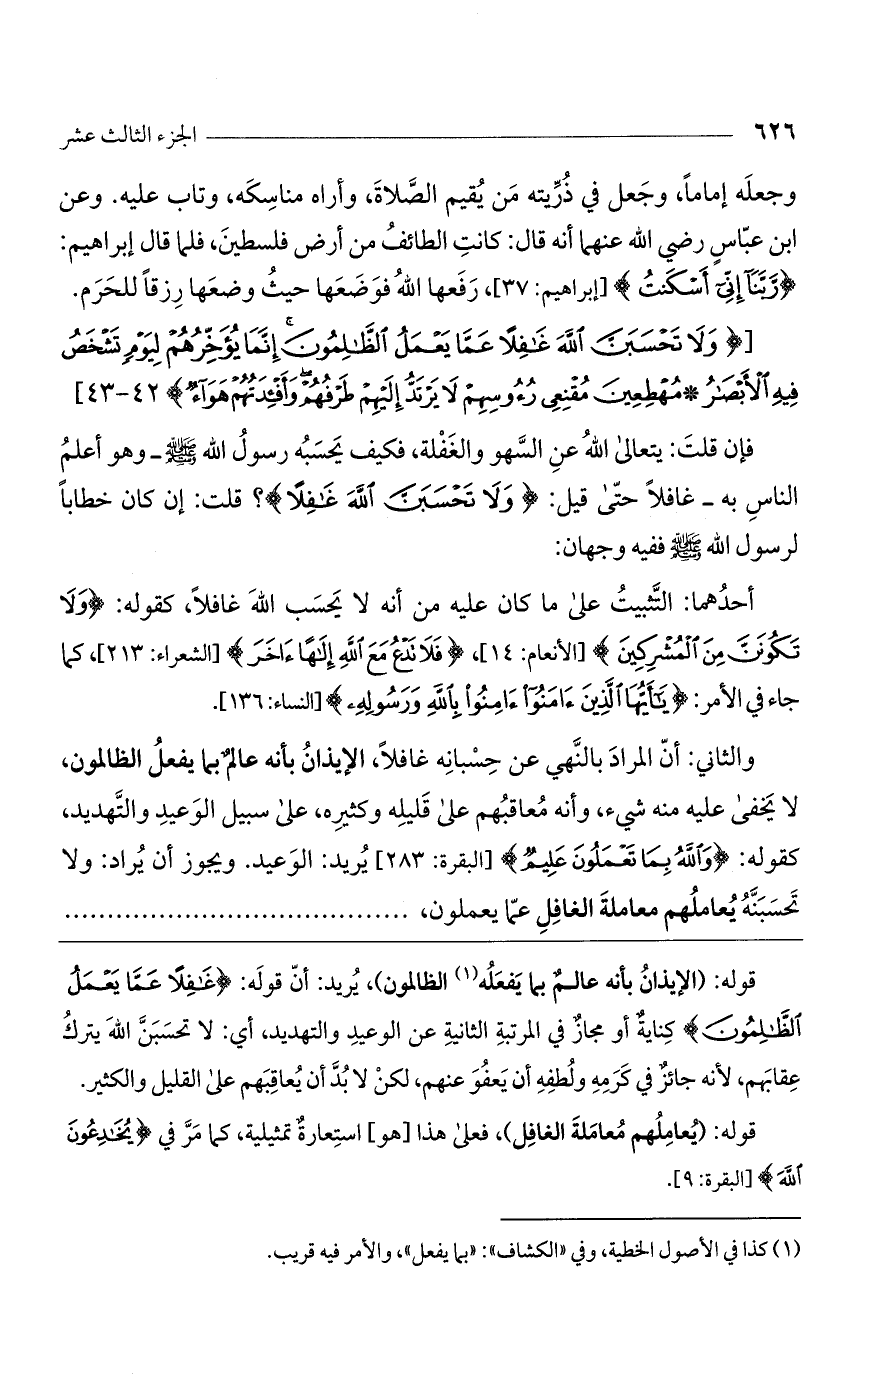 ٦٢٦ ــــــــــــــــــــ الجزء الثالث عشر
وجعلَه إماماً، وجَعل في ذُرِّيته مَن يُقيم الصَّلاةَ، وأراه مناسِكَه، وتاب عليه. وعن
ابن عبّاسٍ رضي الله عنهما أنه قال: كانتِ الطائفُ من أرض فلسطينَ، فلما قال إبراهيم:
﴿رَّبَّنَآ إِنِّىٓ أَسْكَنتُ﴾ [إبراهيم: ٣٧]، رَفَعها اللهُ فوَضَعَها حيثُ وضعَها رِزقاً للحَرَم.
[﴿وَلَا تَحْسَبَنَّ ٱللَّهَ غَٰفِلًا عَمَّا يَعْمَلُ ٱلظَّٰلِمُونَ ۚ إِنَّمَا يُؤَخِّرُهُمْ لِيَوْمٍ تَشْخَصُ
فِيهِ ٱلْأَبْصَٰرُ * مُهْطِعِينَ مُقْنِعِى رُءُوسِهِمْ لَا يَرْتَدُّ إِلَيْهِمْ طَرْفُهُمْ ۖ وَأَفْـِٔدَتُهُمْ هَوَآءٌ﴾ ٤٢-٤٣]
فإن قلتَ: يتعالىٰ اللهُ عنِ السَّهو والغَفْلة، فكيف يَحسَبُه رسولُ الله ﷺ ـ وهو أعلمُ
الناسِ به ـ غافلاً حتّىٰ قيل: ﴿وَلَا تَحْسَبَنَّ ٱللَّهَ غَٰفِلًا﴾؟ قلت: إن كان خطاباً
لرسول الله ﷺ ففيه وجهان:
أحدُهما: التَّثبيتُ علىٰ ما كان عليه من أنه لا يَحسَب اللهَ غافلاً، كقوله: ﴿وَلَا
تَكُونَنَّ مِنَ ٱلْمُشْرِكِينَ﴾ [الأنعام: ١٤]، ﴿فَلَا تَدْعُ مَعَ ٱللَّهِ إِلَٰهًا ءَاخَرَ﴾ [الشعراء: ٢١٣]، كما
جاء في الأمر: ﴿يَٰٓأَيُّهَا ٱلَّذِينَ ءَامَنُوٓا۟ ءَامِنُوا۟ بِٱللَّهِ وَرَسُولِهِۦ﴾ [النساء: ١٣٦].
والثاني: أنّ المرادَ بالنَّهي عن حِسْبانِه غافلاً، الإيذانُ بأنه عالمٌ بما يفعلُ الظالمون،
لا يَخفىٰ عليه منه شيء، وأنه مُعاقبُهم علىٰ قَليلِه وكثيرِه، علىٰ سبيل الوَعيدِ والتَّهديد،
كقوله: ﴿وَٱللَّهُ بِمَا تَعْمَلُونَ عَلِيمٌ﴾ [البقرة: ٢٨٣] يُريد: الوَعيد. ويجوز أن يُراد: ولا
تَحسَبَنَّهُ يُعاملُهم معاملةَ الغافلِ عمّا يعملون، ........................................
قوله: (الإيذانُ بأنه عالـمٌ بما يَفعَلُه(١) الظالمون)، يُريد: أنّ قولَه: ﴿غَٰفِلًا عَمَّا يَعْمَلُ
ٱلظَّٰلِمُونَ﴾ كِنايةٌ أو مجازٌ في المرتبةِ الثانيةِ عن الوعيدِ والتهديد، أي: لا تحسَبَنَّ اللهَ يتركُ
عِقابَهم، لأنه جائزٌ في كَرَمِهِ ولُطفِهِ أن يَعفُوَ عنهم، لكنْ لا بُدَّ أن يُعاقِبَهم علىٰ القليل والكثير.
قوله: (يُعامِلُهم مُعامَلةَ الغافِل)، فعلىٰ هذا [هو] استِعارةٌ تمثيلية، كما مَرَّ في ﴿يُخَٰدِعُونَ
ٱللَّهَ﴾ [البقرة: ٩].
(١) كذا في الأصول الخطية، وفي «الكشاف»: «بما يفعل»، والأمر فيه قريب.